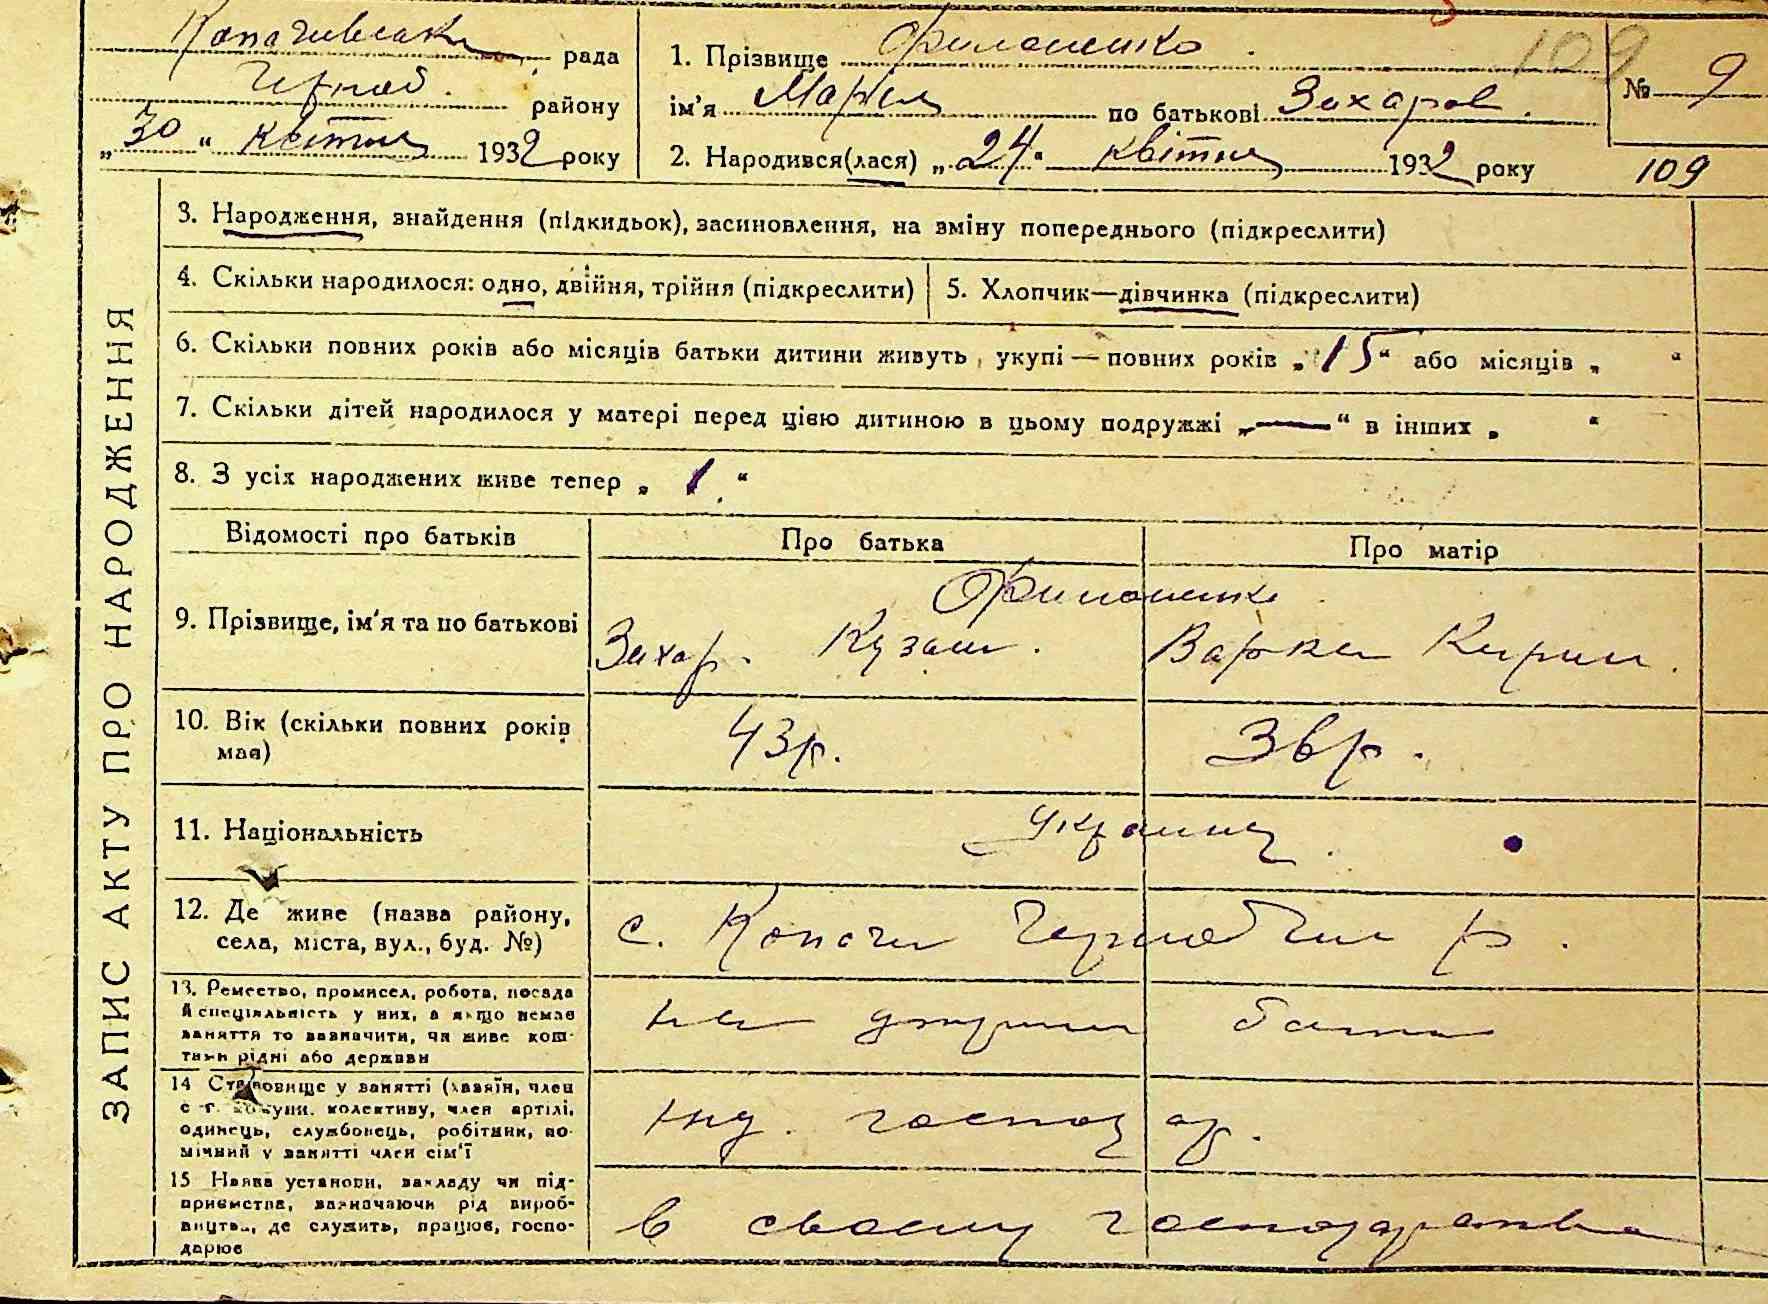 Копачивська рада
Чорноб. району
„30“ квітня 1932 року
1. Прізвище Филоненко.
ім'я Марія по батькові Захаров.
2. Народився(лася) „24“ квітня 1932 року
109
№ 9
109
ЗАПИС АКТУ ПРО НАРОДЖЕННЯ
3. Народження, знайдення (підкидьок), засиновлення, на зміну попереднього (підкреслити)
4. Скільки народилося: одно, двійня, трійня (підкреслити)
5. Хлопчик—дівчинка (підкреслити)
6. Скільки повних років або місяців батьки дитини живуть укупі — повних років „15“ або місяців „ “
7. Скільки дітей народилося у матері перед цією дитиною в цьому подружжі „—“ в інших „ “
8. З усіх народжених живе тепер „1.“
Відомості про батьків
Про батька
Про матір
9. Прізвище, ім'я та по батькові
Филоненко
Захар. Кузьм.
Варка Кирил.
10. Вік (скільки повних років
має)
43р.
36р.
11. Національність
Україн.
12. Де живе (назва району,
села, міста, вул., буд. №)
с. Копачи Чорноб р.
13. Ремество, промисел, робота, посада
й спеціяльність у них, а якщо немає
заняття то зазначити, чи живе кош-
тами рідні або держави
на
14 Становище у занятті (хазяїн, член
с.-г. комуни, колективу, член артілі,
одинець, службовець, робітник, по-
мічний у занятті член сім'ї
Інд. господар.
15 Назва установи, закладу чи під-
приємства, зазначаючи рід вироб-
ництва, де служить, працює, госпо-
дарює
в своему господарстве